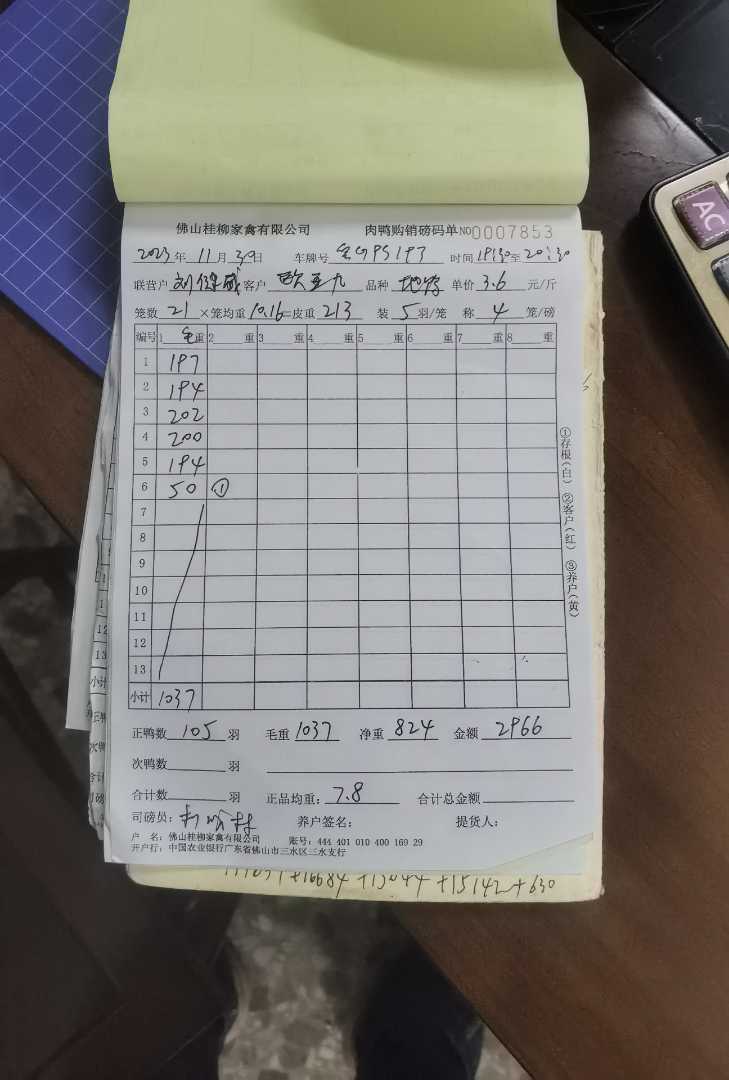 佛山桂柳家禽有限公司 肉鸭购销磅码单 NO 0007853
2023年 11月 30日 车牌号 时间 19:30至 20:30
联营户 刘 客户 欧亚九 品种 单价 3.6 元/斤
笼数 21 ×笼均重 10.16=皮重 213 装 5 羽/笼 称 4 笼/磅
编号 1 毛重 2 重 3 重 4 重 5 重 6 重 7 重 8 重
1 197
2 194
3 202
4 200
5 194
6 50 ①
7
8
9
10
11
12
13
小计 1037
①存根(白) ②客户(红) ③养户(黄)
正鸭数 105 羽 毛重 1037 净重 824 金额 2966
次鸭数 羽
合计数 羽 正品均重: 7.8 合计总金额
司磅员: 养户签名: 提货人:
户 名: 佛山桂柳家禽有限公司 账号: 444 401 010 400 169 29
开户行: 中国农业银行广东省佛山市三水区三水支行
+16684 +13044 +15142+630
AC